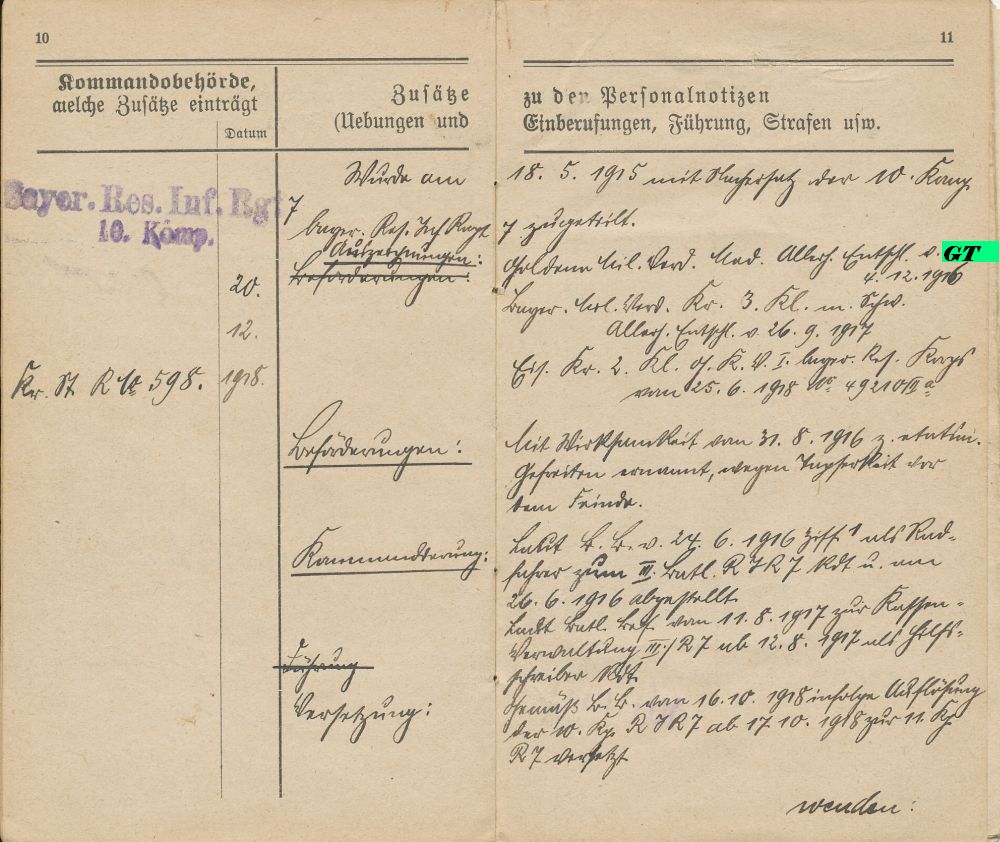 10
Kommandobehörde,
welche Zusätze einträgt
Datum
Zusätze
(Uebungen und
Bayer. Res. Inf. Rgt
10. Komp.
7
20.
12.
1918.
Kr. St. R No 598.
Wurde am
bayer. Res. Inf. Regt
Auszeichnungen:
Beförderungen:
Beförderungen:
Kommandierung:
Führung
Versetzung:
11
zu den Personalnotizen
Einberufungen, Führung, Strafen usw.
18. 5. 1915 mit Nachersatz der 10. Komp
7 zugeteilt.
Goldene Mil. Verd. Med. Allerh. Entschl. v.
GT
4. 12. 1916
Bayer. Mil. Verd. Kr. 3. Kl. m. Schw.
Allerh. Entschl. v. 26. 9. 1917
Eis. Kr. 2. Kl. d. K. I. bayer. Res. Korps
vom 25. 6. 1918 No 49210
Mit Wirksamkeit vom 31. 8. 1916 z. etatsm.
Gefreiten ernannt, wegen Tapferkeit vor
dem Feinde.
Laut B. B. v. 24. 6. 1916 Ziff 1 als Rad-
fahrer zum III. Batl. R I R 7 kdt u. am
26. 6. 1916 abgestellt.
Laut Batl. Bef. vom 11. 8. 1917 zur Kassen-
Verwaltung III./R 7 ab 12. 8. 1917 als Hilfs-
schreiber kdt.
Gemäß B. B. vom 16. 10. 1918 infolge Auflösung
der 10. Kp. R I R 7 ab 17. 10. 1918 zur 11. Kp
R 7 versetzt
wenden: